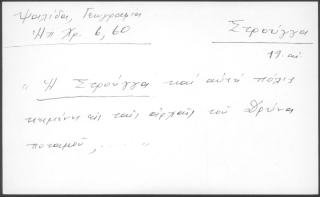 Ψαλίδα, Γεωγραφία
Ηπ Χρ. 6, 60
Στρούγγα
19. αι
"Η Στρούγγα καί αυτή πόλις
κειμένη εις τάς αρχάς του Δρύνα
ποταμού, . . . . "